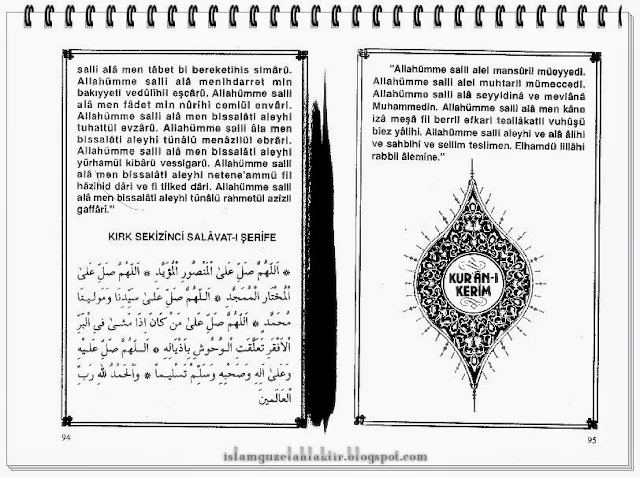 salli alâ men tâbet bi bereketihis simârü.
Allahümme salli alâ menihdarret min
bakıyyeti vedûlihil eşcârü. Allahümme salli
alâ men fâdet min nûrihi cemiül envâri.
Allahümme salli alâ men bissalâti aleyhi
tuhattül evzârü. Allahümme salli âla men
bissalâti aleyhi tünâlü menâzilül ebrâri.
Allahümme salli alâ men bissalâti aleyhi
yürhamül kibârü vessigarü. Allahümme salli
alâ men bissalâti aleyhi netene'ammü fil
hâzihid dâri ve fi tilked dâri. Allahümme salli
alâ men bissalâti aleyhi tünâlü rahmetül azîzil
gaffâri."
KIRK SEKİZİNCİ SALÂVAT-I ŞERİFE
* اَللّٰهُمَّ صَلِّ عَلَى الْمَنْصُورِ الْمُؤَيَّدِ * اَللّٰهُمَّ صَلِّ عَلَى
الْمُخْتَارِ الْمُمَجَّدِ * اَللّٰهُمَّ صَلِّ عَلٰى سَيِّدِنَا وَمَوْلٰينَا
مُحَمَّدٍ * اَللّٰهُمَّ صَلِّ عَلٰى مَنْ كَانَ اِذَا مَشٰى فِي الْبَرِّ
الْاَفْقَرِ تَعَلَّقَتِ الْوُحُوشُ بِاَذْيَالِهِ * اَللّٰهُمَّ صَلِّ عَلَيْهِ
وَعَلٰى اٰلِهِ وَصَحْبِهِ وَسَلِّمْ تَسْلِيمًا * وَالْحَمْدُ لِلّٰهِ رَبِّ
الْعَالَمِينَ
94
"Allahümme salli alel mansûril müeyyedi.
Allahümme salli alel muhtaril mümeccedi.
Allahümme salli alâ seyyidinâ ve mevlânâ
Muhammedin. Allahümme salli alâ men kâne
izâ meşâ fil berril efkari teallâkatil vuhûşü
biez yâlihi. Allahümme salli aleyhi ve alâ âlihi
ve sahbihi ve sellim teslimen. Elhamdü lillâhi
rabbil âlemine."
KUR'ÂN-I
KERİM
95
islamguzelahlaktir.blogspot.com